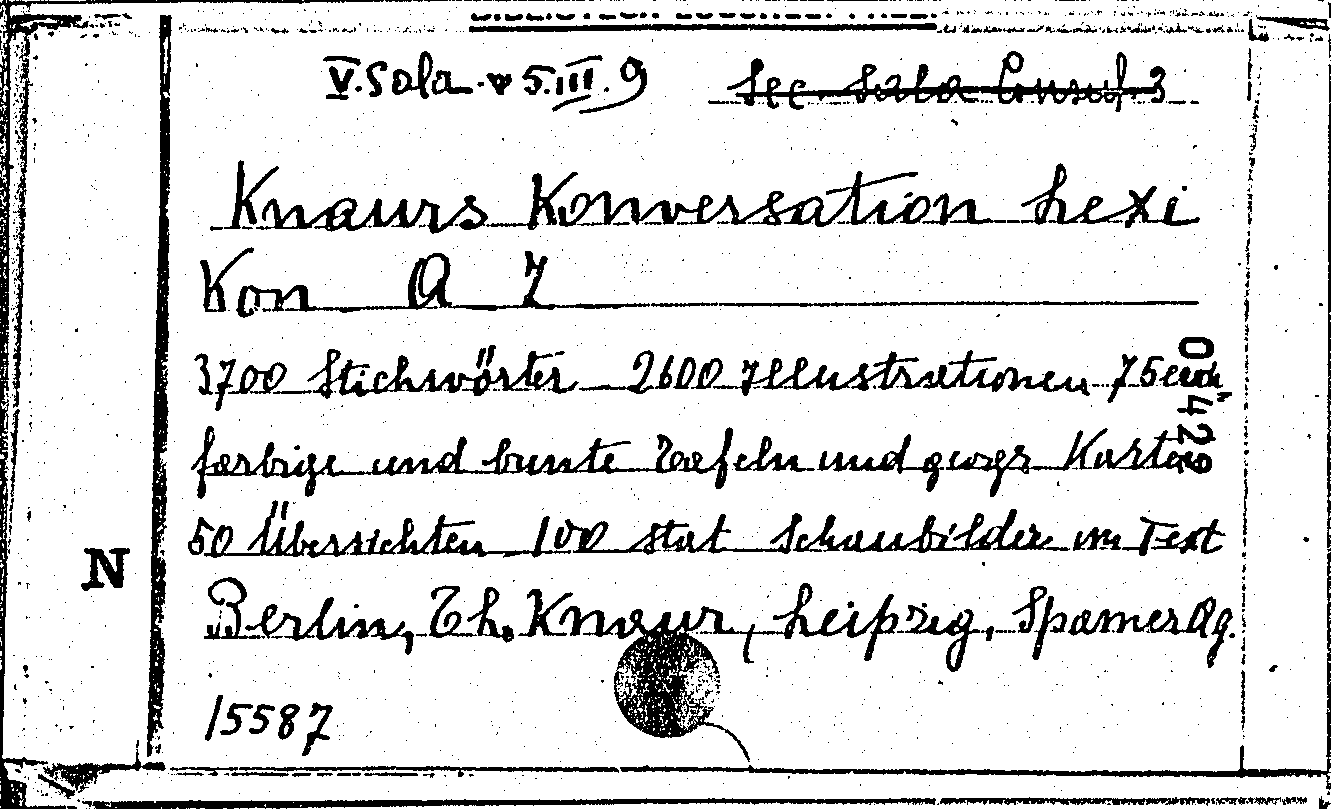 V. Sala. v 5.III.9 Sec. Sala Consul. 3
Knaurs Konversation Lexi
Kon A Z
3700 Stichwörter 2600 Illustrationen 75
farbige und bunte Tafeln und geogr Karten
50 Übersichten 100 stat Schaubilder im Text
N
Berlin, Th. Knaur, Leipzig, Spamer Ag.
15587